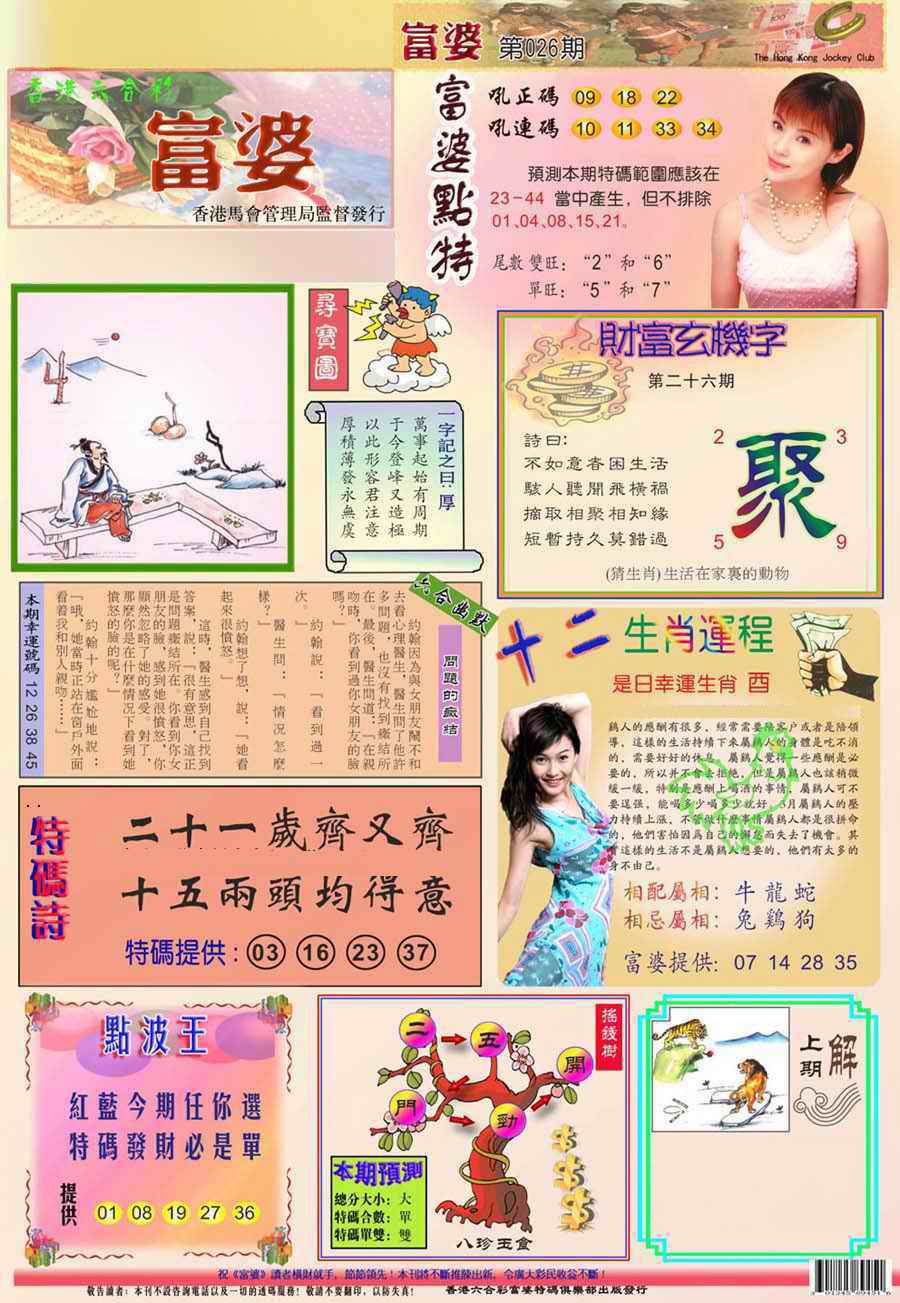 富婆 第026期
The Hong Kong Jockey Club
香港六合彩
富婆
香港馬會管理局監督發行
富婆點特
吼正碼 09 18 22
吼連碼 10 11 33 34
預測本期特碼範圍應該在
23-44 當中產生，但不排除
01、04、08、15、21。
尾數 雙旺：“2”和“6”
單旺：“5”和“7”
尋寶圖
一字記之曰：厚
萬事起始有周期
于今登峰又造極
以此形容君注意
厚積薄發永無虞
財富玄機字
第二十六期
詩曰：
不如意者困生活
駭人聽聞飛橫禍
摘取相聚相知緣
短暫持久莫錯過
2 3
聚
5 9
(猜生肖)生活在家裏的動物
六合幽默
問題的癥結
約翰因為與女朋友鬧不和
去看心理醫生，醫生問了他許
多問題，也沒有找到癥結所
在。最後，醫生問道：「在親
吻時，你看到過你女朋友的臉
嗎？」
約翰說：「看到過一
次。」
醫生問：「情況怎麼
樣？」
約翰想了想，說：「她看
起來很憤怒。」
這時，醫生感到自己找到
答案，說：「很有意思，這正
是問題癥結所在。你看到你女
朋友的臉，感到她很憤怒，你
顯然忽略了她的感受。對了，
那麼你是在什麼情況下看到她
憤怒的臉的呢？」
約翰十分尷尬地說：
「哦，她當時正站在窗戶外面
看着我和別人親吻……」
本期幸運號碼 12 26 38 45
十二生肖運程
是日幸運生肖 酉
鷄人的應酬有很多，經常需要陪客戶或者是陪領
導，這樣的生活持續下來屬鷄人的身體是吃不消
的，需要好好的休息。屬鷄人覺得一些應酬是必
要的，所以并不會去拒絕，但是屬鷄人也該稍微
緩一緩，特別是應酬上喝酒的事情，屬鷄人可不
要逞强，能喝多少喝多少就好。3月屬鷄人的壓
力持續上漲，不管做什麼事情屬鷄人都是很拼命
的，他們害怕因爲自己的懈怠而失去了機會。其
實這樣的生活不是屬鷄人想要的，他們有太多的
身不由己。
相配屬相：牛 龍 蛇
相忌屬相：兔 鷄 狗
富婆提供：07 14 28 35
特碼詩
二十一歲齊又齊
十五兩頭均得意
特碼提供：03 16 23 37
點波王
紅藍今期任你選
特碼發財必是單
提供 01 08 19 27 36
搖錢樹
二 五 開
門 勁
本期預測
總分大小：大
特碼合數：單
特碼單雙：雙
八珍玉食
上期解
祝《富婆》讀者橫財就手，節節領先！本刊將不斷推陳出新，令廣大彩民收益不斷！
敬告讀者：本刊不設咨詢電話以及一切的透碼服務！敬請不要翻印，以防失真！
香港六合彩富婆特碼俱樂部出版發行